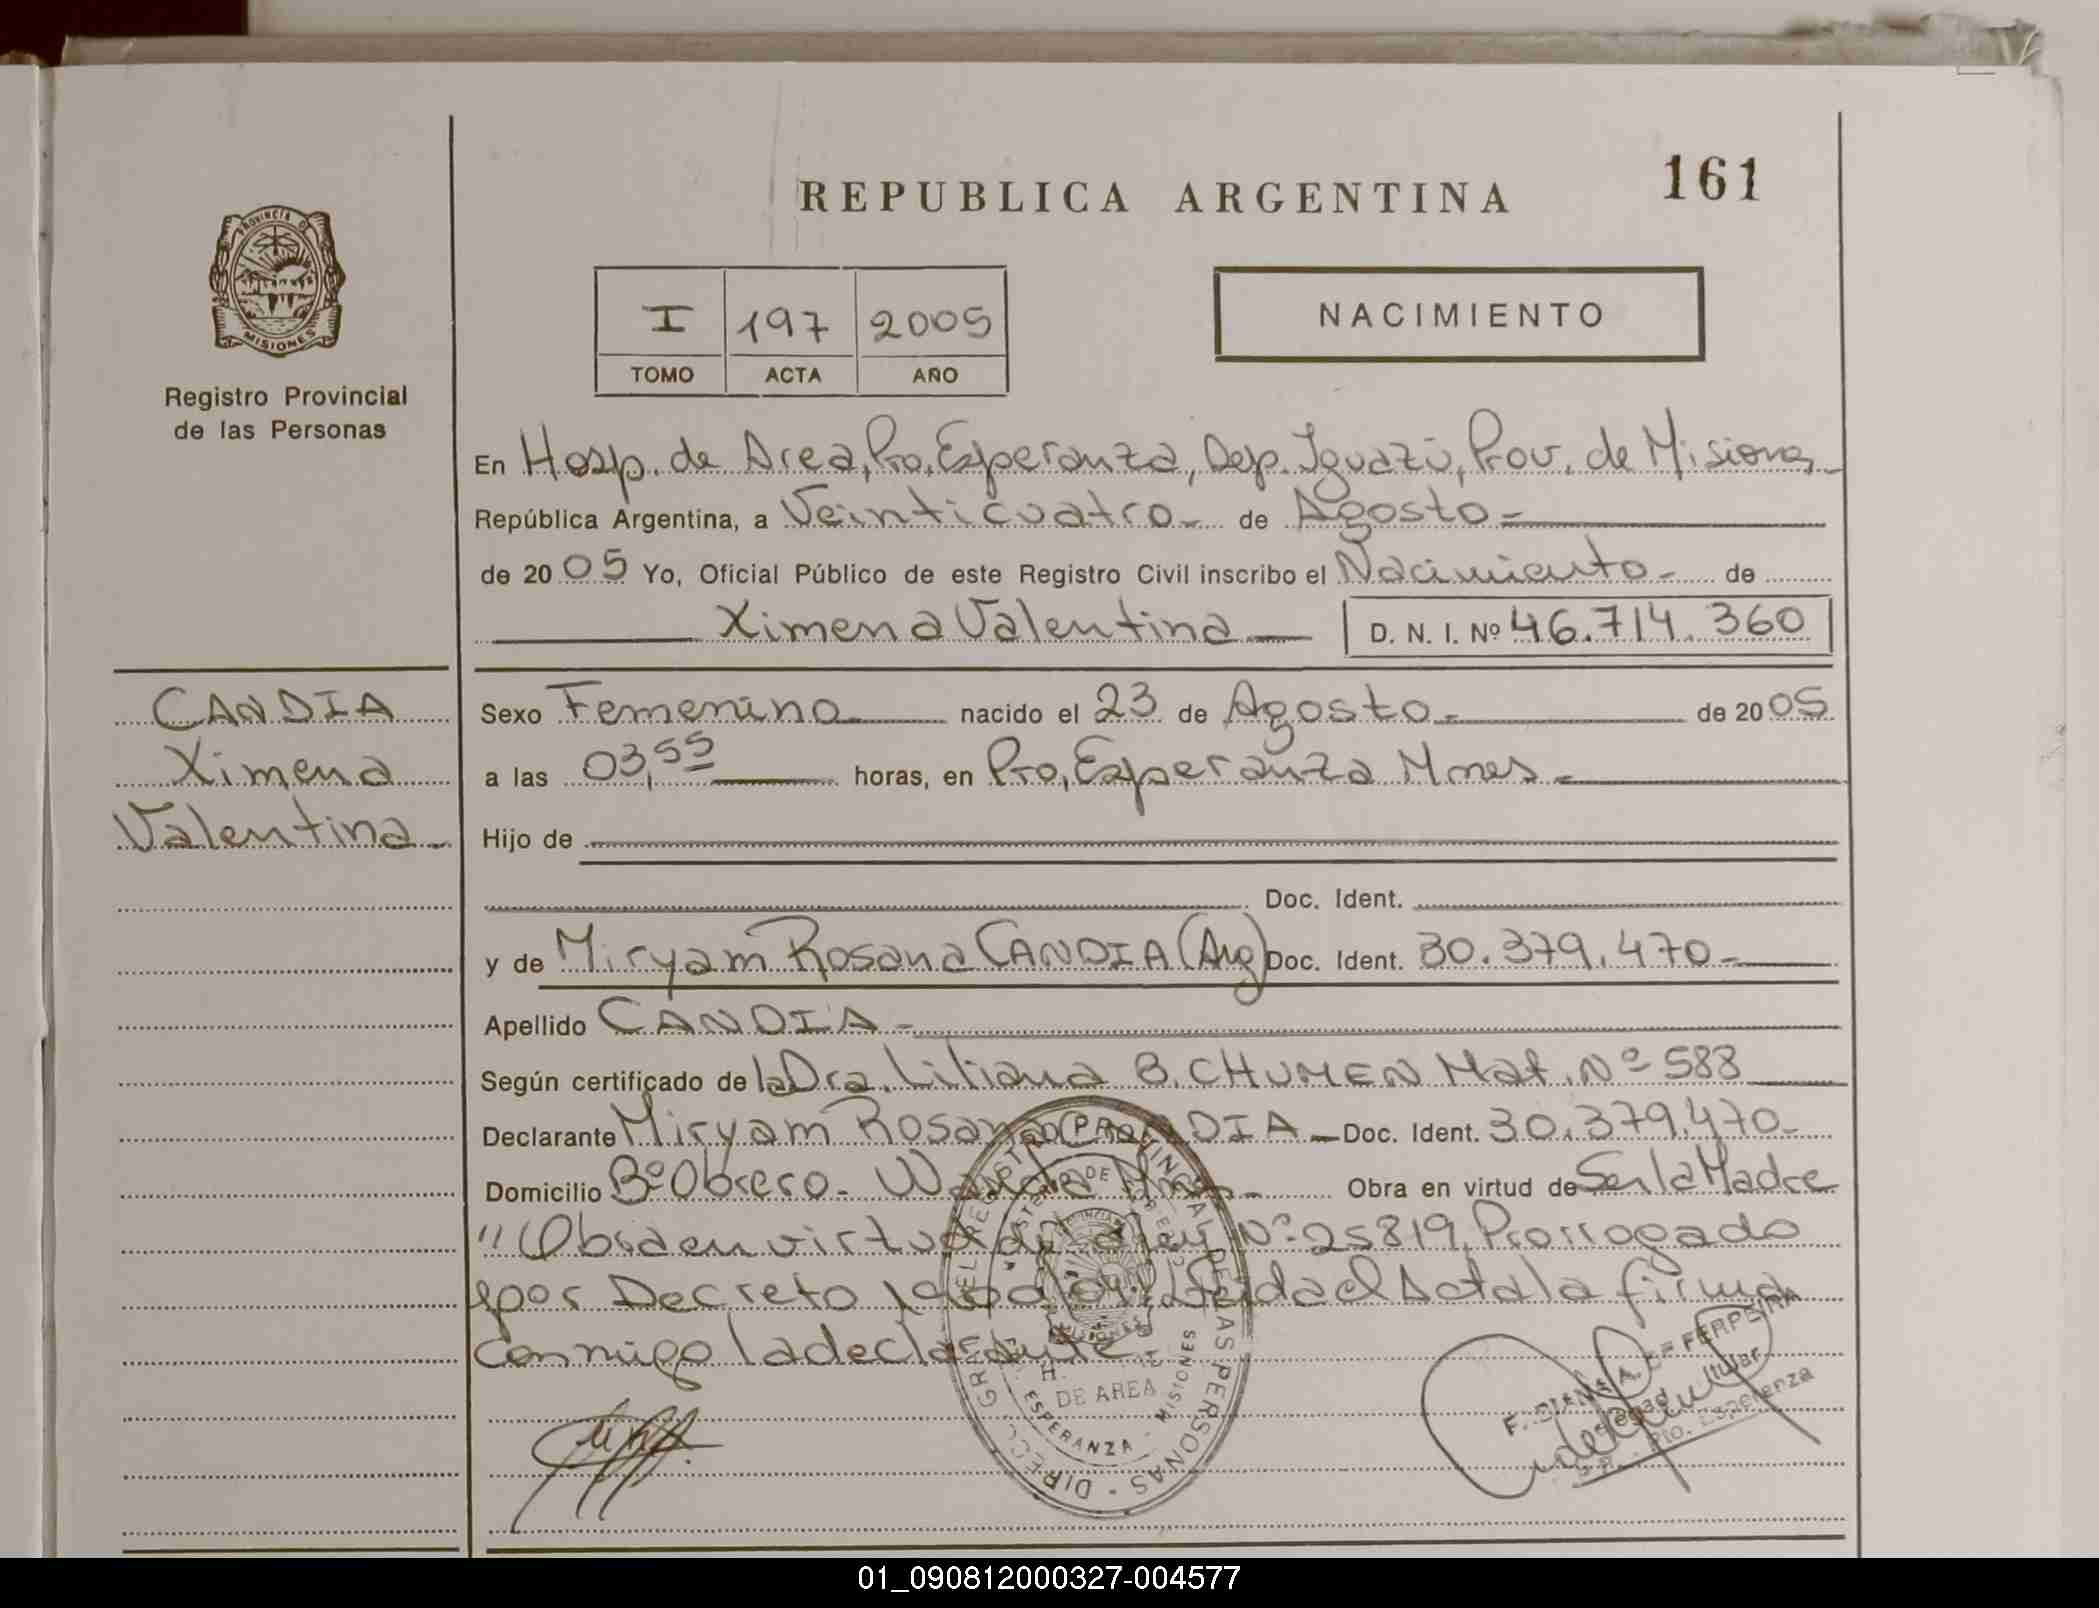 REPUBLICA ARGENTINA
161
PROVINCIA DE
MISIONES
Registro Provincial
de las Personas
I 197 2005
TOMO ACTA AÑO
NACIMIENTO
En Hosp. de Area, Pto, Esperanza, Dep. Iguazú, Prov. de Misiones
República Argentina, a Veinticuatro de Agosto
de 2005 Yo, Oficial Público de este Registro Civil inscribo el Nacimiento de
Ximena Valentina D. N. I. Nº 46.714.360
CANDIA
Ximena
Valentina
Sexo Femenino nacido el 23 de Agosto de 2005
a las 03,55 horas, en Pto, Esperanza Mnes
Hijo de
Doc. Ident.
y de Miryam Rosana CANDIA (Arg) Doc. Ident. 30.379.470
Apellido CANDIA
Según certificado de la Dra. Liliana B. CHUMEN Mat. Nº 588
Declarante Miryam Rosana CANDIA Doc. Ident. 30.379.470
Domicilio Bº Obrero. Wanda Mnes Obra en virtud de Ser la Madre
"Obra en virtud de la Ley Nº 25819, Prorrogado
por Decreto Leida el Acta la firma
conmigo la declarante
DIRECC. GRAL. DEL REGISTRO PROVINCIAL DE LAS PERSONAS
MISIONES
H. DE AREA
ESPERANZA - MISIONES
Pto. Esperanza
01_090812000327-004577